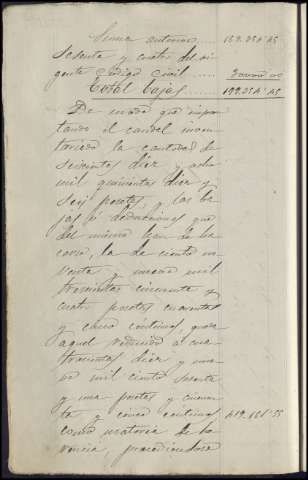 Suma anterior 169.354'45
Sesenta y cuatro del vi-
gente Código Civil 30000'00
Total bajas 199.354'45
De modo que impor-
tando el caudal inven-
tariado la cantidad de
seiscientas diez y ocho
mil quinientas diez y
seis pesetas, y las ba-
jas ó deducciones que
del mismo han de ha-
cerse, la de ciento no-
venta y nueve mil
trescientas cincuenta y
cuatro pesetas cuarenta
y cinco céntimos, queda
aquel reducido á cua-
trocientas diez y nue-
ve mil ciento sesenta
y una pesetas y cincuen-
ta y cinco céntimos 419.161'55
como materia de la
herencia, procediéndose